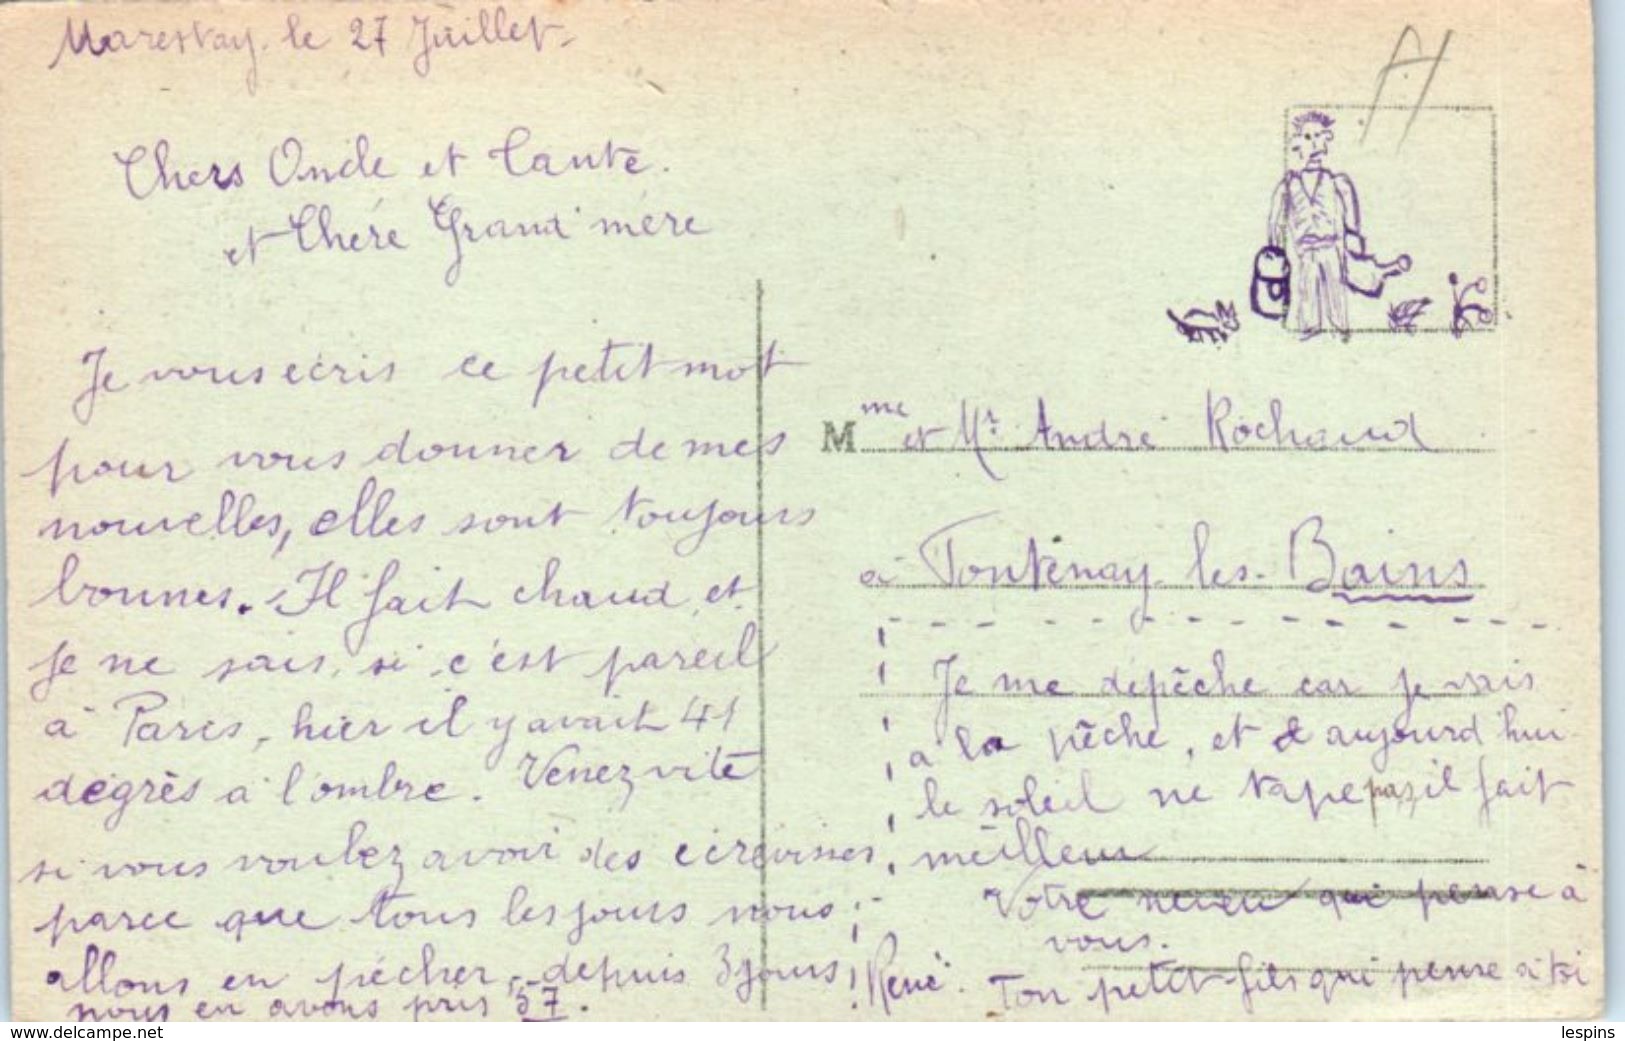 Marestay. le 27 Juillet.
Chers Oncle et Tante.
et Chère Grand'mère
Je vous écris ce petit mot
pour vous donner de mes
nouvelles, elles sont toujours
bonnes. Il fait chaud et
je ne sais si c'est pareil
à Paris, hier il y avait 41
degrès à l'ombre. Venez vite
si vous voulez avoir des écrévisses
parce que tous les jours nous
allons en pécher, depuis 3 jours
nous en avons pris 57.
H
Mme et Mr. André Rochaud
à Fontenay-les-Bains
Je me dépêche car je vais
à la pêche, et aujourd'hui
le soleil ne tape pas, il fait
meilleur
Votre neveu qui pense à
vous.
René. Ton petit-fils qui pense à toi
www.delcampe.net
lespins